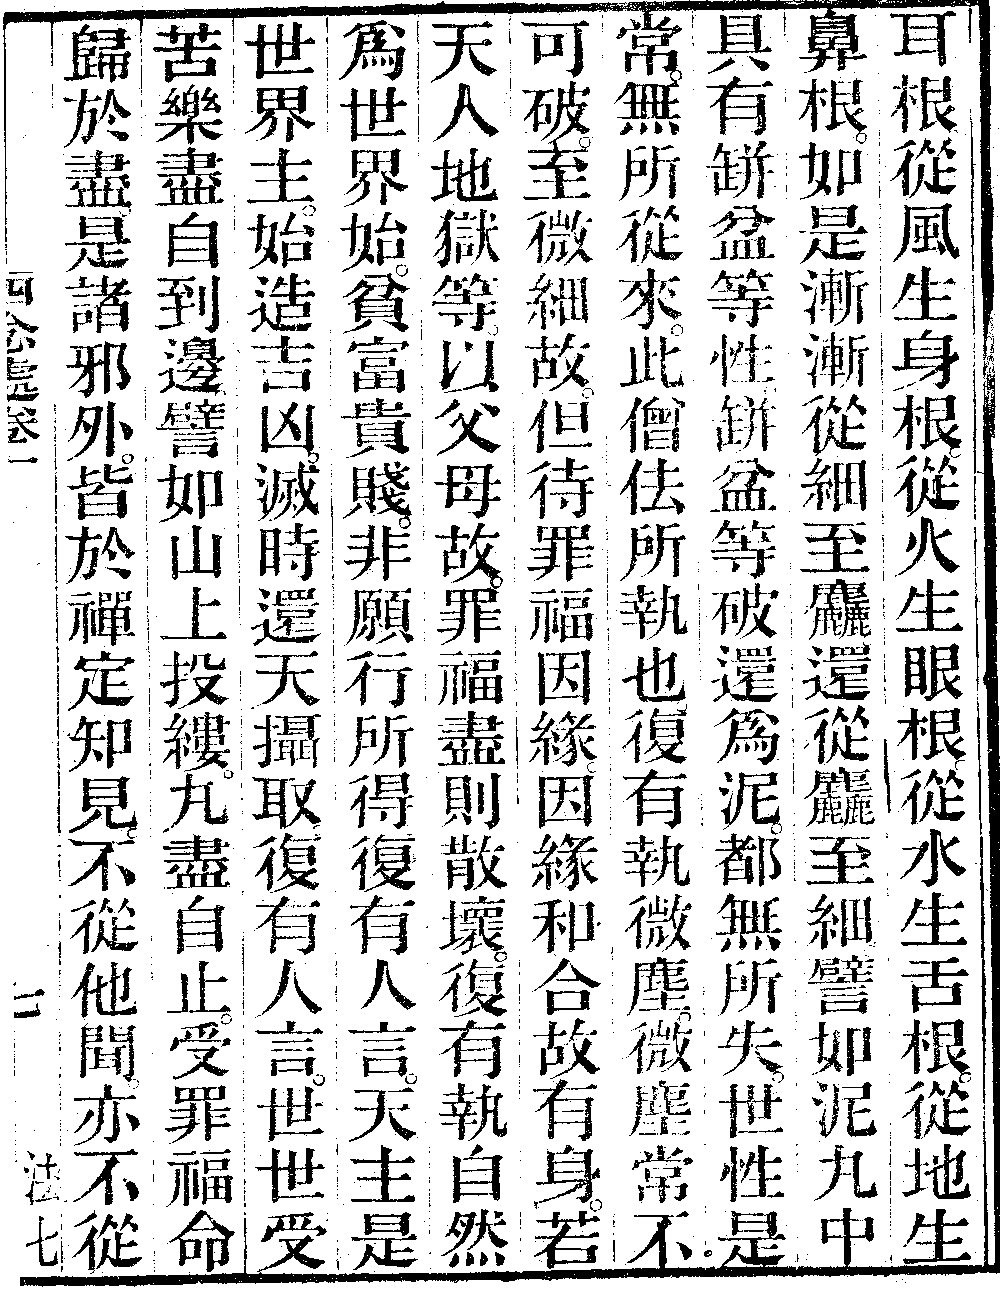 耳根從風生身根從火生眼根從水生舌根從地生
鼻根如是漸漸從細至麤還從麤至細譬如泥丸中
具有缾盆等性缾盆等破還爲泥都無所失世性是
常無所從來此僧佉所執也復有執微塵微塵常不
可破至微細故但待罪福因緣因緣和合故有身若
天人地獄等以父母故罪福盡則散壞復有執自然
爲世界始貧富貴賤非願行所得復有人言天主是
世界主始造吉凶滅時還天攝取復有人言世世受
苦樂盡自到邊譬如山上投縷丸盡自止受罪福命
歸於盡是諸邪外皆於禪定知見不從他聞亦不從
四念處卷一
七
法七